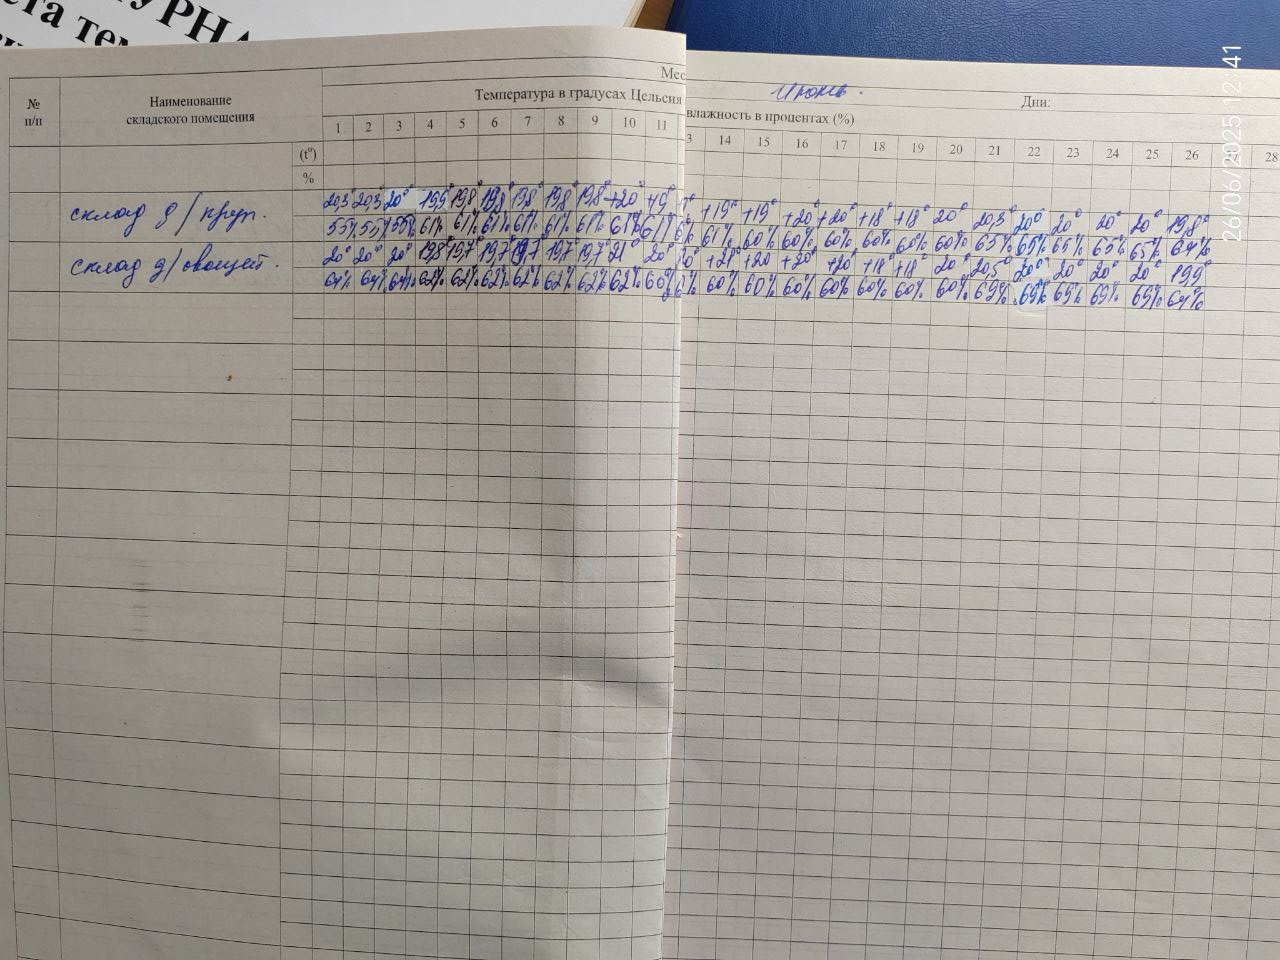 УРНА
ета тем
Мес
Июнь.
Дни:
№ п/п
Наименование складского помещения
Температура в градусах Цельсия
влажность в процентах (%)
1 2 3 4 5 6 7 8 9 10 11 3 14 15 16 17 18 19 20 21 22 23 24 25 26 28
(t°)
%
склад д/круп. 20,3° 20,3° 20° 19,5° 19,8° 19,8° 19,8° 19,8° 19,8° +20° +19° +19° +19° +20° +20° +18° +18° 20° 20,3° 20° 20° 20° 20° 19,8°
55% 55% 55% 61% 61% 61% 61% 61% 61% 61% 61% 61% 60% 60% 60% 60% 60% 60% 65% 65% 65% 65% 65% 64%
склад д/овощей. 20° 20° 20° 19,8° 19,7° 19,7° 19,7° 19,7° 19,7° 21° 20° +21° +20 +20° +20° +18° +18° 20° 20,5° 20° 20° 20° 20° 19,9°
64% 64% 64% 62% 62% 62% 62% 62% 62% 62% 60% 60% 60% 60% 60% 60% 60% 60% 69% 69% 69% 69% 69% 64%
26/06/2025 12:41